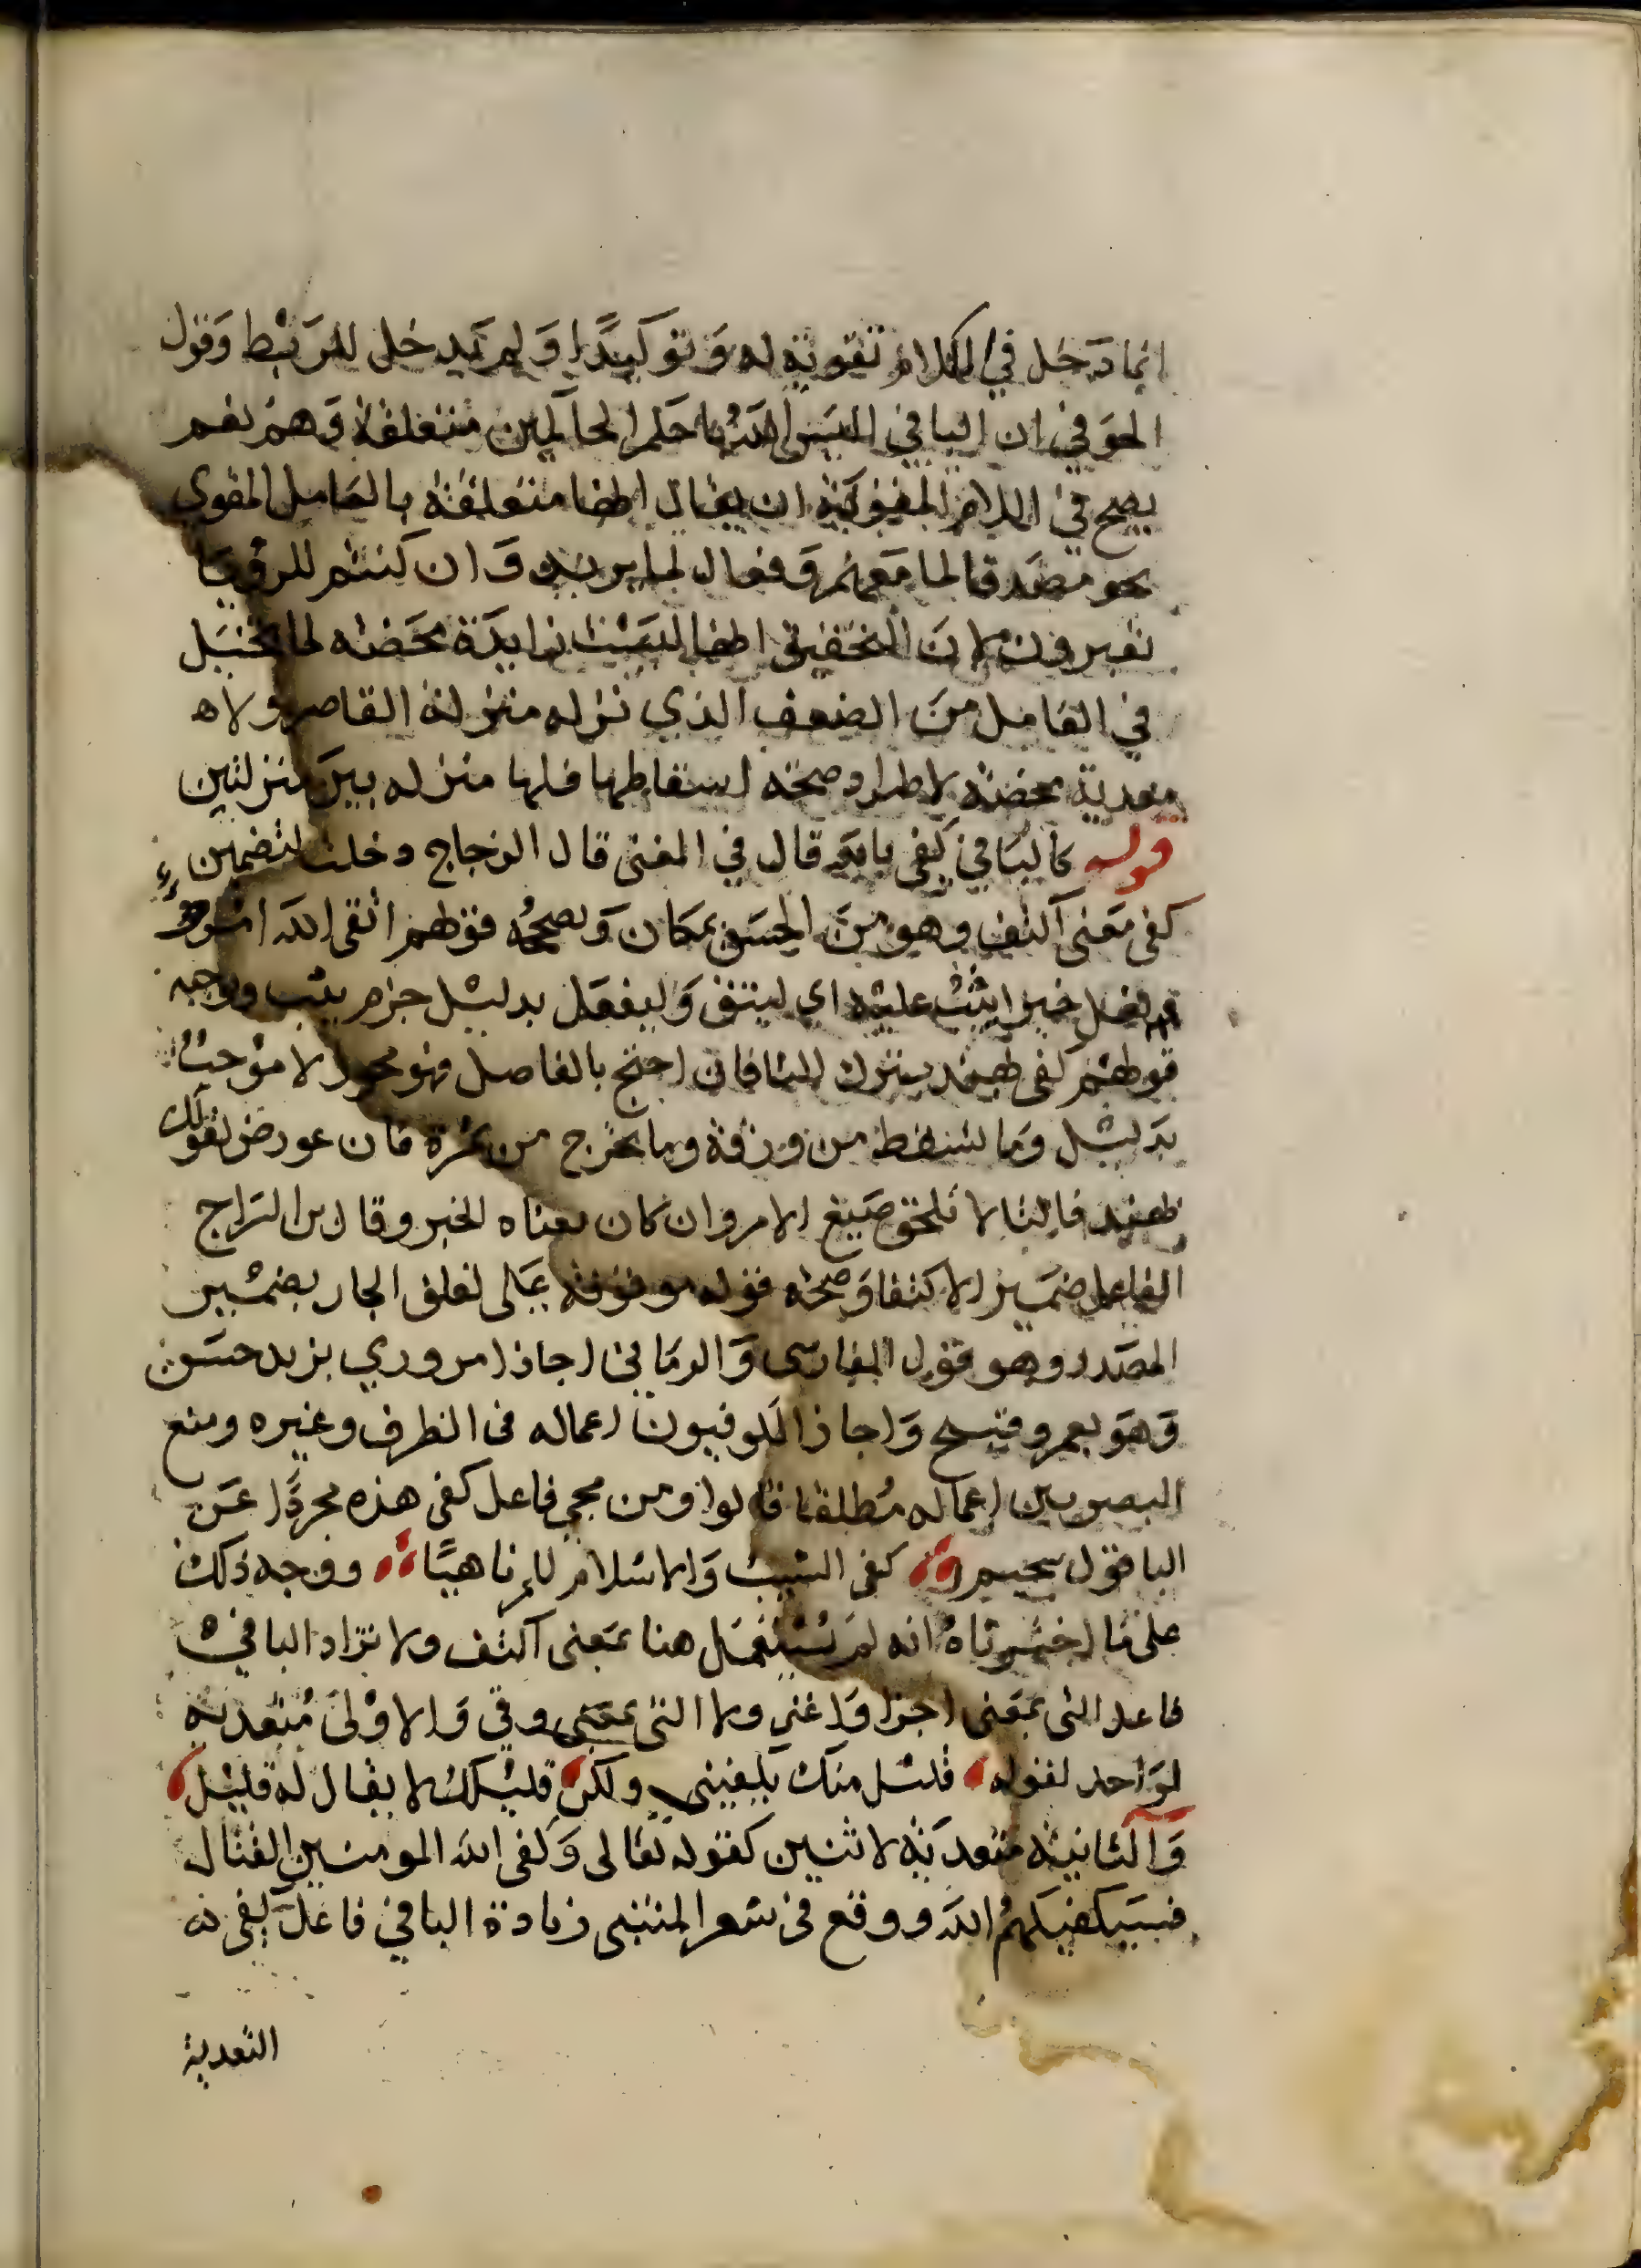 انما دخل في الكلام تقوية له وَتوكيدًا وَلم يدخل للرَبْط وَقول
الحوفي ان البا في اليسَ اللهُ باحكم الحاكمين متعلقة وَهم نعم
يصح في اللام المقوية ان يقال انها متعلقة بالعامل المقوى
نحو مصَدقا لما مَعهم وَفعال لما يريد وَان كنتم للرؤيَا
تعبرون لانَ التحقيق انها ليسَت زايدَة محَضه لما تخيَل
في العَامِل منَ الضعف الذي نزله منزلة القاصر ولا
معدية محضة لاطراد صحة اسقاطها فلها منزله بينَ منزلتين
قوله كالبَا في كَفى بالله قال في المغنى قال الزجاج دخلت لتضمين
كفى مَعنى اكتف وهو منَ الحسَن بمكان وَيصححُه قولهم اتقى اللَه امرؤ
فعل خيرا يُثَبْ عليْه اي ليتق وَليفعَل بدليْل جزم يثب ويوجبه
قولهُم كفى بهند بترك التا فان احتج بالفاصل فهو مجوز لا مؤجبٌ
بدَليْل وَما تسقط من ورقة وما تخرج من ثمرة فان عورض بقولك
بهند فالتا لا تلحق صيَغ الامر وان كان معناه الخبر وقال بن السَراج
الفاعل ضَمير الاكتفا وَصحة قوله موقوفة عَلى تعلق الجار بضمْير
المصَدر وهو قول الفارسى وَالرمَاني اجازا مروري بزيد حسَن
وَهوَ بعمرو قبيح وَاجاز الكوفيون اعماله فى الظرف وغيره ومنع
البصريين اعماله مُطلقا قالوا ومن مجي فاعل كفى هذه مجردًا عَن
البا قول سحيم كفى الشيب وَالاسْلام للمرء ناهيًا ووجه ذلك
على مَا اخترناهُ انه لم يُسْتعمَل هنا بمَعنى اكتف ولا تزاد البا فيْ
فاعل التى بمَعنى اجزا وَاغنى ولا التى بمعَنى وقى وَالاوْلىَ مُتعديَة
لوَاحد لقوله قليْل منك يكفيني ولكن قليْلك لا يقال لهَ قليْل
وَالثانيَة متعدَية لاثنين كقوله تعَالى وَكَفى الله المومنين القتال
فسَيكفيكهمُ اللهَ ووقع فى شعر المتنبى زيادة البا في فاعل كَفى
التعدية